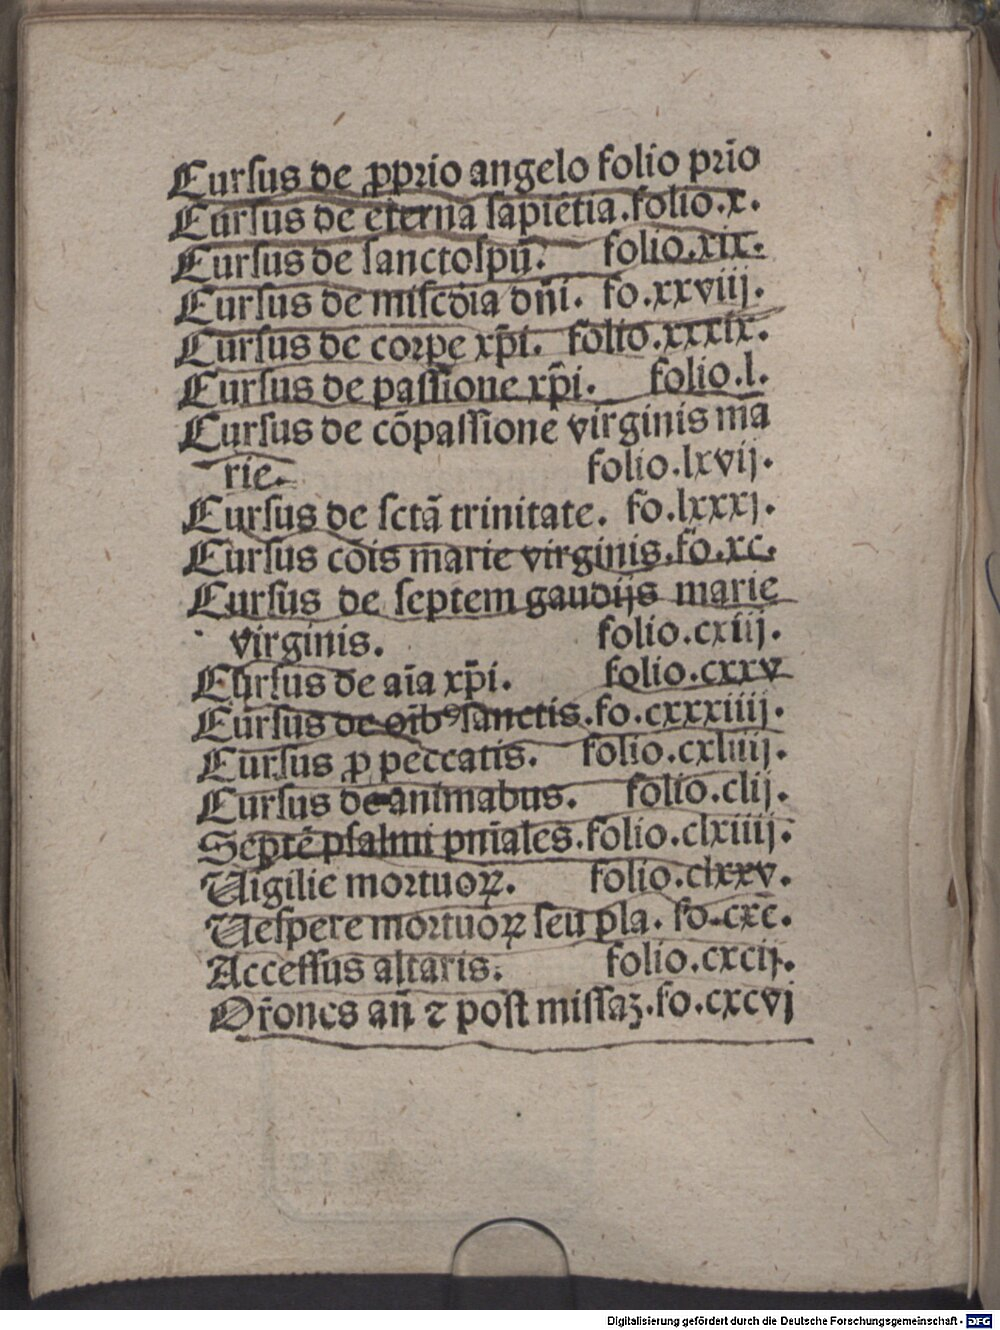 Cursus de ꝓprio angelo folio pr̄io
Cursus de eterna sapiētia.folio.x.
Cursus de sanctospū. folio.xix.
Cursus de misc̄dia dn̄i. fo.xxviij.
Cursus de corpe xp̄i. folio.xxxix.
Cursus de passione xp̄i. folio.l.
Cursus de cōpassione virginis ma
rie. folio.lxvij.
Cursus de sctā trinitate. fo.lxxxj.
Cursus cōis marie virginis.fo.xc.
Cursus de septem gaudijs marie
virginis. folio.cxiij.
Cursus de aīa xp̄i. folio.cxxv
Cursus de oībꝰ sanctis.fo.cxxxiiij.
Cursus ꝓ peccatis. folio.cxliiij.
Cursus de animabus. folio.clij.
Septē psalmi pn̄iales.folio.clxiiij.
Vigilie mortuoꝝ. folio.clxxv.
Vespere mortuoꝝ seu pla. fo.cxc.
Accessus altaris. folio.cxcij.
Or̄ones an̄ ⁊ post missaꝫ.fo.cxcvj
Digitalisierung gefördert durch die Deutsche Forschungsgemeinschaft - DFG